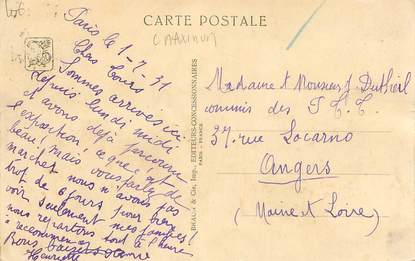 CARTE POSTALE
(MAXIMUM)
Paris le 1-7-31
Chers Tous
Sommes arrivés ici
depuis lundi midi
et avons déjà parcouru
l'exposition, ce que c'est
beau! mais vous parlez de
marcher nous n'avons pas
trop de 6 jours pour bien
voir seulement mes jambes!
nous repartons tout à l'heure
à recommencer
Bons baisers
Henriette
BRAUN & Cie, Imp., ÉDITEURS-CONCESSIONNAIRES
PARIS - FRANCE
Madame et Monsieur J. Dutheil
commis des P.T.T.
37, rue Locarno
Angers
(Maine et Loire)